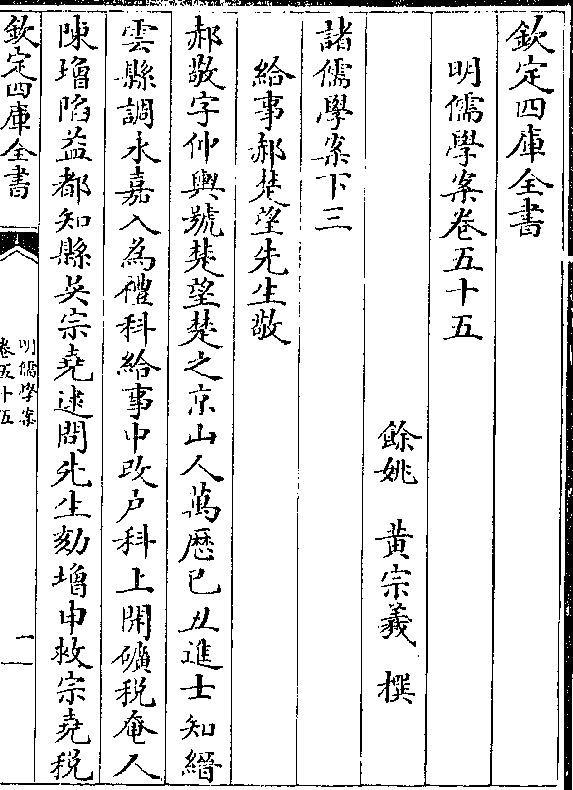 欽定四庫全書
明儒學案卷五十五
餘姚 黄宗羲 撰
諸儒學案下三
給事郝楚望先生敬
郝敬字仲輿號楚望楚之京山人萬厯己丑進士知縉
雲縣調永嘉入為禮科給事中改户科上開礦税奄人
陳增陷益都知縣吳宗堯逮問先生劾增申救宗堯税
欽定四庫全書
明儒學案
卷五十五
一